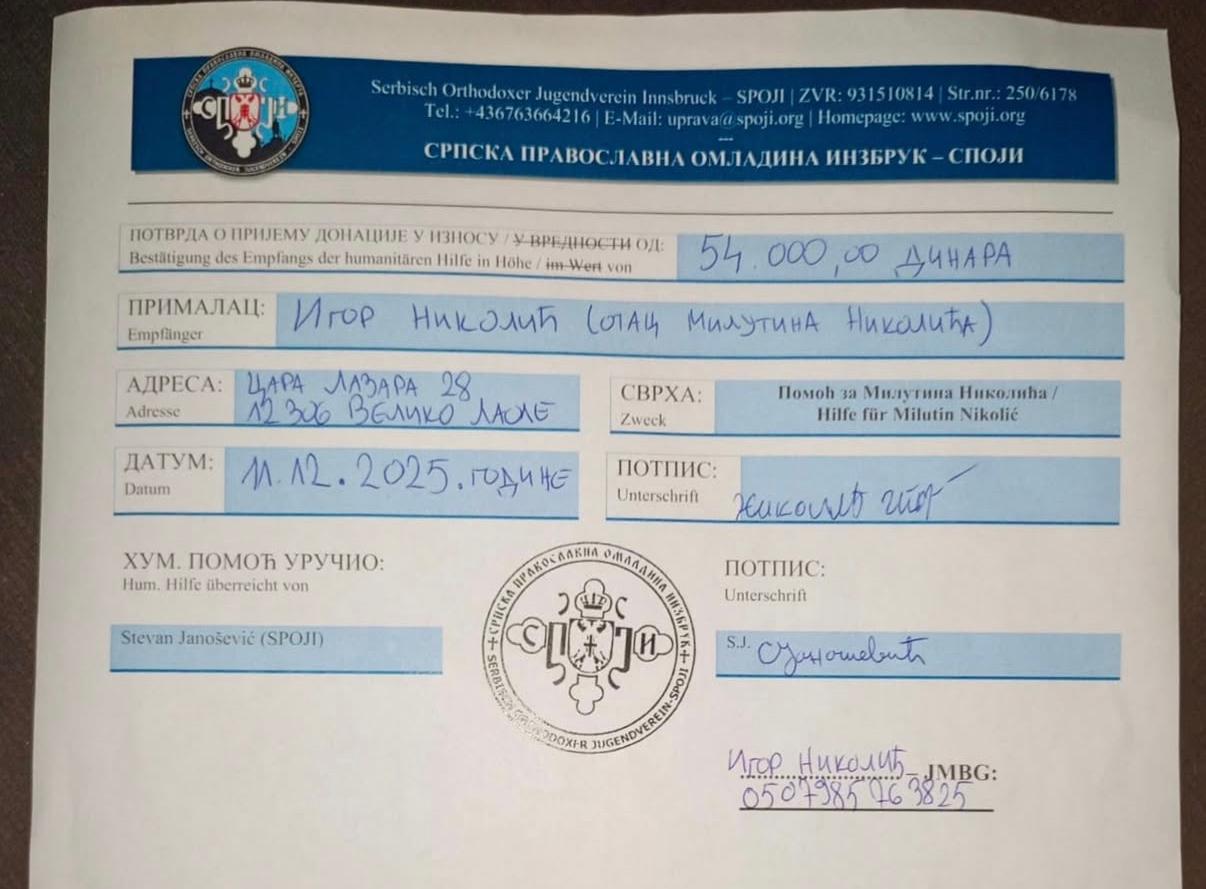 Serbisch Orthodoxer Jugendverein Innsbruck – SPOJI | ZVR: 931510814 | Str.nr.: 250/6178
Tel.: +436763664216 | E-Mail: uprava@spoji.org | Homepage: www.spoji.org
СРПСКА ПРАВОСЛАВНА ОМЛАДИНА ИНЗБРУК – СПОЈИ
ПОТВРДА О ПРИЈЕМУ ДОНАЦИЈЕ У ИЗНОСУ / У ВРЕДНОСТИ ОД:
Bestätigung des Empfangs der humanitären Hilfe in Höhe / im Wert von
54.000,00 ДИНАРА
ПРИМАЛАЦ:
Empfänger
Игор Николић (отац Милутина Николића)
АДРЕСА:
Adresse
ЦАРА ЛАЗАРА 28
12306 ВЕЛИКО ЛАОЛЕ
СВРХА:
Zweck
Помоћ за Милутина Николића /
Hilfe für Milutin Nikolić
ДАТУМ:
Datum
11.12.2025. године
ПОТПИС:
Unterschrift
Николић
ХУМ. ПОМОЋ УРУЧИО:
Hum. Hilfe überreicht von
Stevan Janošević (SPOJI)
СРПСКА ПРАВОСЛАВНА ОМЛАДИНА ИНЗБРУК
С П Ј И
SERBISCH ORTHODOXER JUGENDVEREIN-SPOJI
ПОТПИС:
Unterschrift
S.J. СЈаношевић
Игор Николић JMBG:
0507985763825